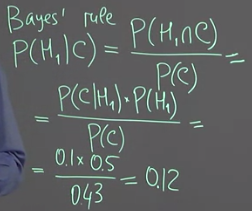 Bayes' rule
P(H₁|C) = P(H₁∩C) / P(C) =
= P(C|H₁)·P(H₁) / P(C) =
= 0.1 x 0.5 / 0.43 = 0.12